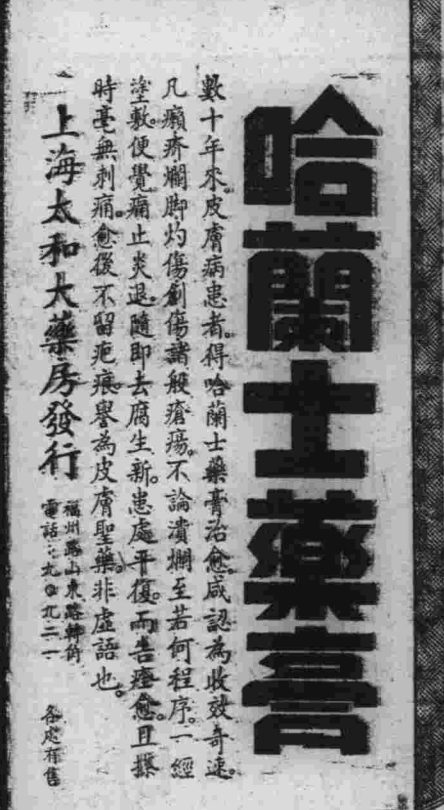 哈蘭士藥膏
數十年來。皮膚病患者。得哈蘭士藥膏治愈。咸認為收效奇速。
凡癩疥爛脚灼傷創傷諸般瘡瘍。不論潰爛至若何程序。一經
塗敷。便覺痛止炎退。隨即去腐生新。患處平復。而告痊愈。且搽
時毫無刺痛。愈後不留疤痕。譽為皮膚聖藥。非虛語也。
上海太和大藥房發行
福州路山東路轉角
電話：九〇九二一
各處有售